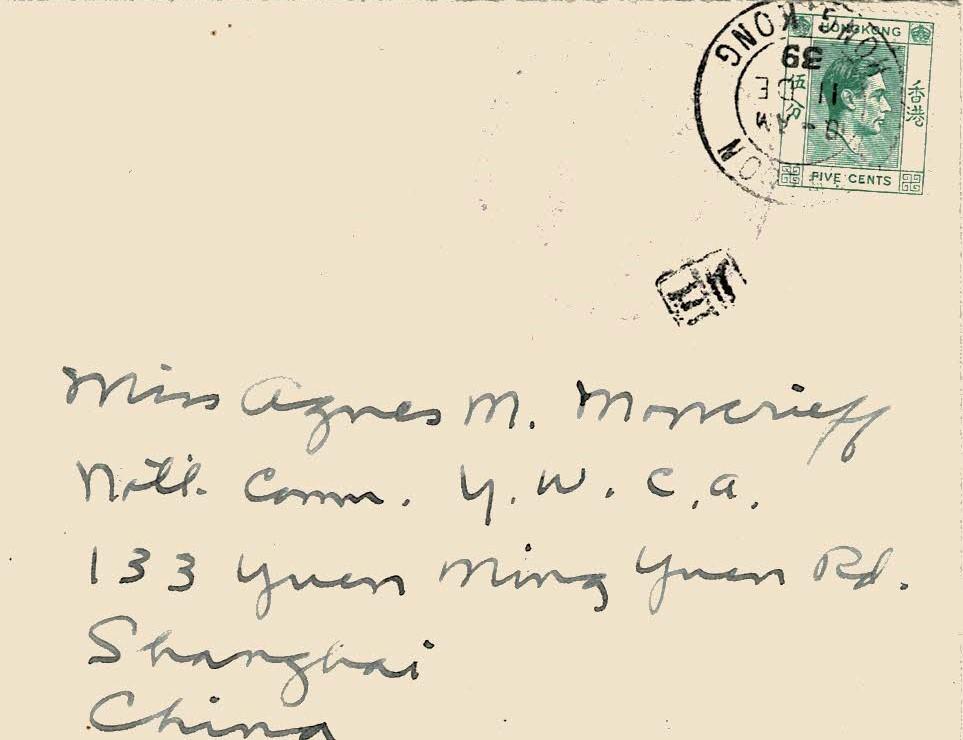 HONG KONG
39
11 DE
10-AM
HONGKONG
香港
伍分
FIVE CENTS
Miss Agnes M. Moncrieff
Nat'l. Comm. Y.W.C.A.
133 Yuen Ming Yuen Rd.
Shanghai
China